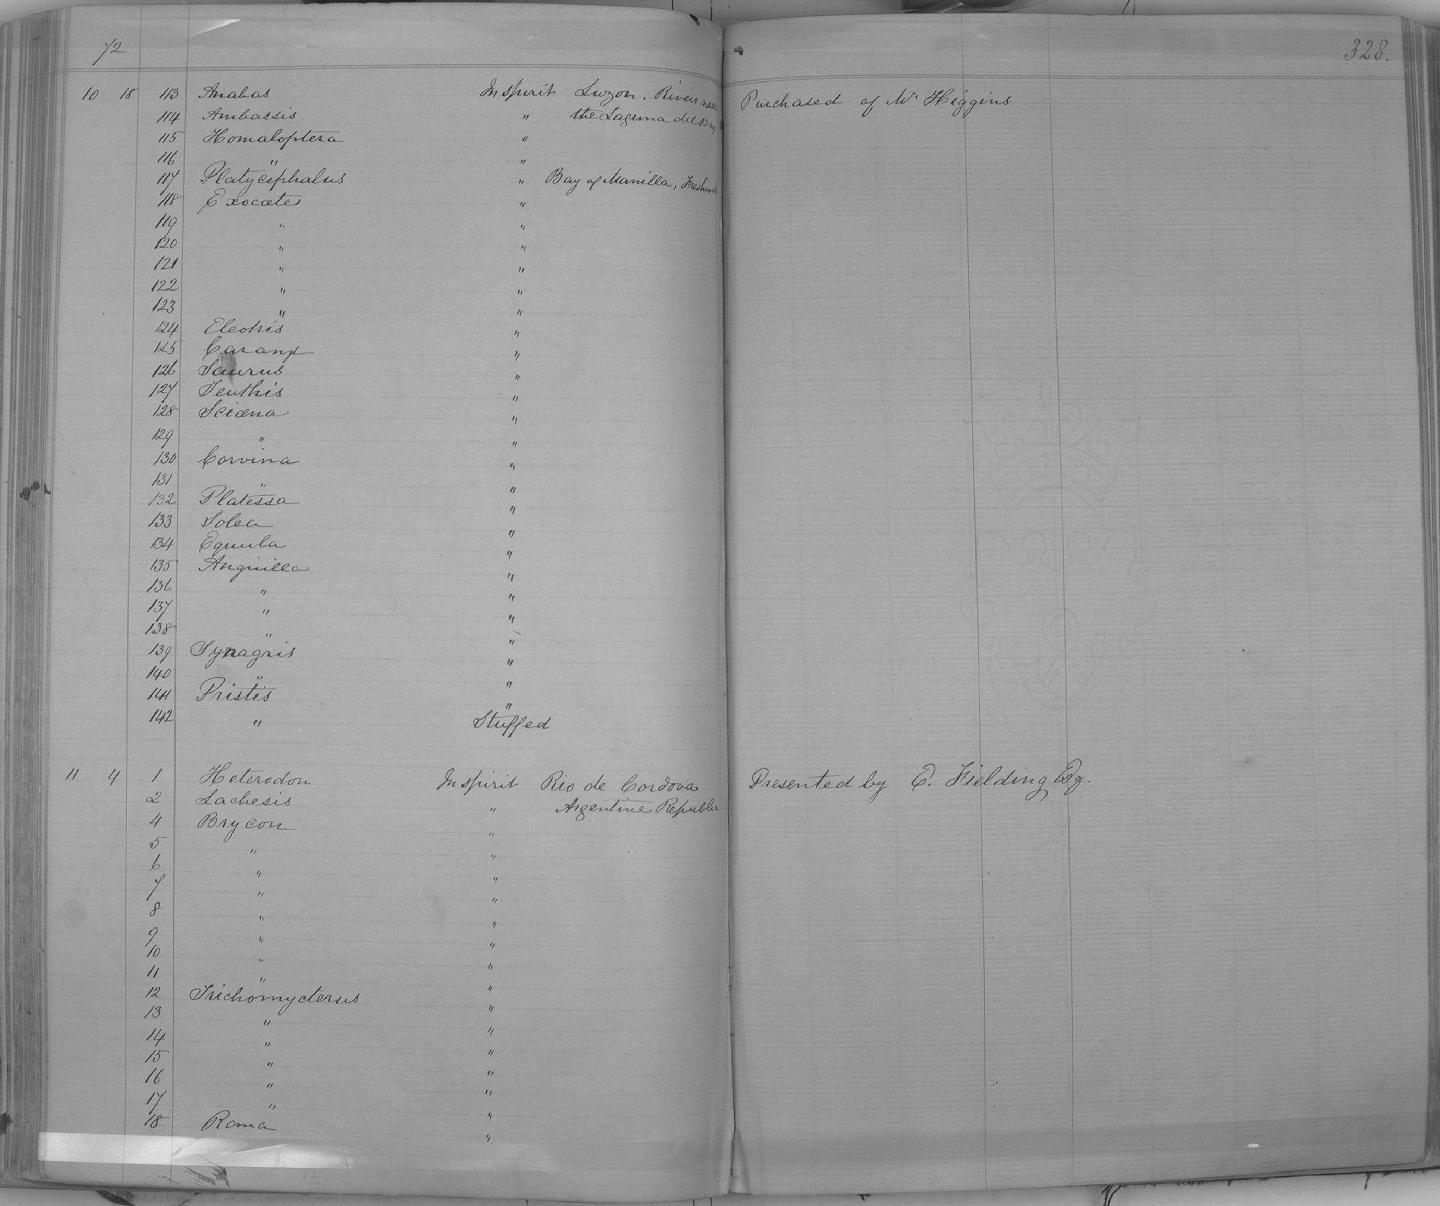 72
328.
10 18 113 Anabas In Spirit Luzon. Rivers near Purchased of Mr Higgins
114 Ambassis " the Laguna del Bay
115 Homaloptera "
116 " "
117 Platycephalus " Bay of Manilla,
118 Exocœtes "
119 " "
120 " "
121 " "
122 " "
123 " "
124 Eleotris "
125 Caranx "
126 Saurus "
127 Teuthis "
128 Sciœna "
129 " "
130 Corvina "
131 " "
132 Platessa "
133 Solea "
134 Equula "
135 Anguilla "
136 " "
137 " "
138 " "
139 Synagris "
140 " "
141 Pristis "
142 " Stuffed
11 4 1 Heterodon In Spirit Rio de Cordova Presented by E. Fielding Esq.
2 Lachesis " Argentine Republic
4 Brycon "
5 " "
6 " "
7 " "
8 " "
9 " "
10 " "
11 " "
12 Trichomycterus "
13 " "
14 " "
15 " "
16 " "
17 " "
18 Rama "